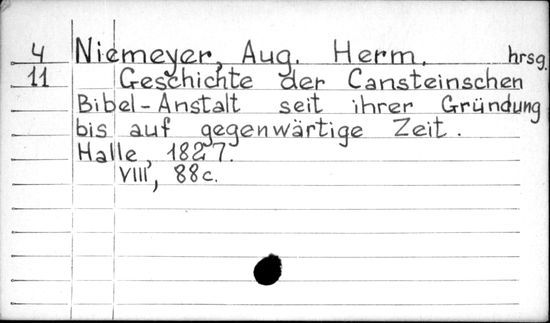 4 Niemeyer, Aug. Herm. hrsg.
11 Geschichte der Cansteinschen
Bibel-Anstalt seit ihrer Gründung
bis auf gegenwärtige Zeit.
Halle, 1827.
VIII, 88c.